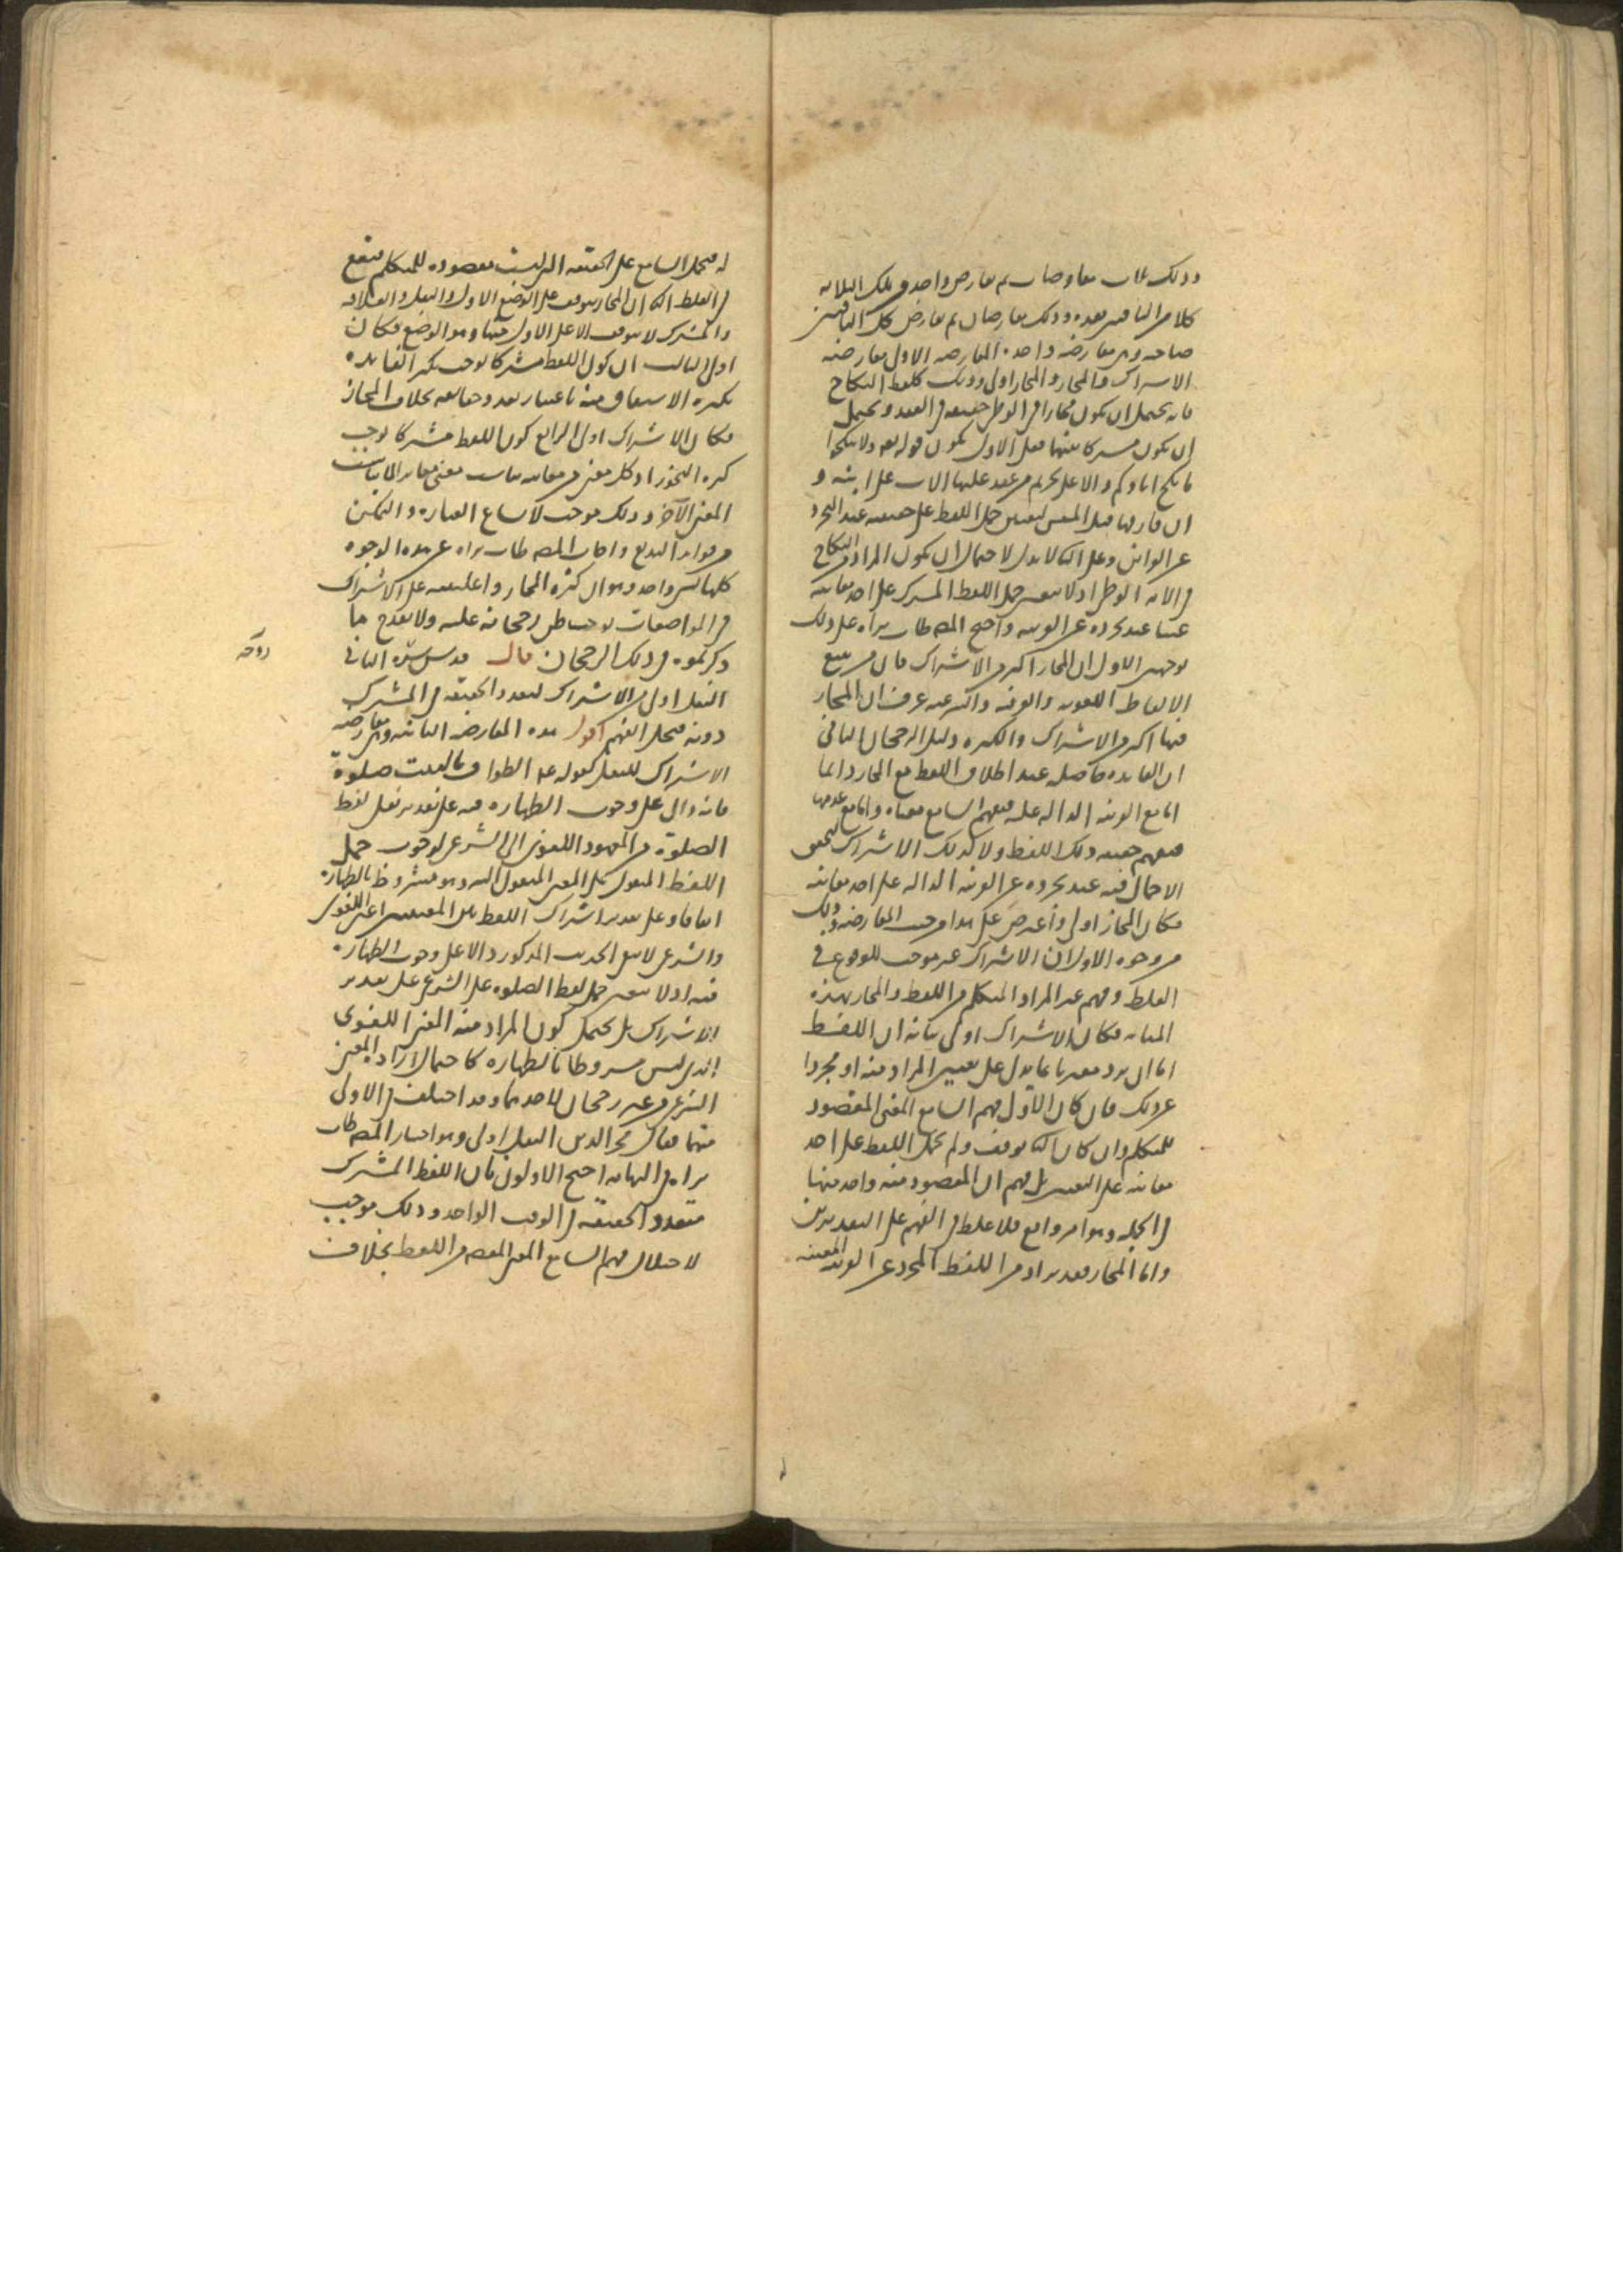 وذلك ثلاث معارضات ثم تعارض واحدة من تلك الثلاثة
كلا من الباقيين بعده وذلك معارضتان ثم تعارض كل الباقيين
صاحبه وهي معارضة واحدة المعارضة الاولى معارضة
الاشتراك والمجاز والمجاز اولى وذلك كلفظ النكاح
فانه يحتمل ان يكون مجازا في الوطى حقيقة في العقد ويحتمل
ان يكون مشتركا بينهما فعلى الاول يكون قوله تعالى ولا تنكحوا
ما نكح اباؤكم دالا على تحريم من عقد عليها الاب على ابنه و
ان فارقها قبل المسيس لتعين حمل اللفظ على حقيقته عند التجرد
عن القرائن وعلى الثاني لا يدل لاحتمال ان يكون المراد من النكاح
في الاية الوطى اذ لا يتعين حمل اللفظ المشترك على احد معانيه
عينا عند تجرده عن القرينة واحتج المص طاب ثراه على ذلك
بوجهين الاول ان المجاز اكثر من الاشتراك فان من تتبع
الالفاظ اللغوية والعرفية واكثر عنه عرف ان المجاز
فيها اكثر من الاشتراك والكثرة دليل الرجحان الثاني
ان الفايدة حاصلة عند اطلاق اللفظ مع المجاز دائما
اما مع القرينة الدالة عليه فيفهم السامع معناه واما مع عدمها
فيفهم حقيقة ذلك اللفظ ولا كذلك الاشتراك لتحقق
الاجمال فيه عند تجرده عن القرينة الدالة على احد معانيه
فكان المجاز اولى واعترض على هذا من حيث المعارضة وذلك
من وجوه الاول ان الاشتراك غير موجب للوقوع في
الغلط وفهم غير المراد المتكلم من اللفظ والمجاز بهذه
المثابة فكان الاشتراك اولى بيانه ان اللفظ
اما ان يرد مقترنا بما يدل على تعيين المراد منه او مجردا
عن ذلك فان كان الاول فهم السامع المعنى المقصود
للمتكلم وان كان الثاني توقف ولم يحمل اللفظ على احد
معانيه على التعيين بل فهم ان المقصود منه واحد منها
في الجملة وهو امر واقع فلا غلط في الفهم على التقديرين
واما المجاز فقد يراد من اللفظ المجرد عن القرينة المعينة
له فيحمل السامع على الحقيقة التي ليست مقصودة للمتكلم فيقع
في الغلط الثاني ان المجاز يتوقف على الوضع الاول والنقل والعلاقة
والمشترك لا يتوقف الا على الاول منها وهو الوضع فكان
اولى الثالث ان كون اللفظ مشتركا يوجب تكثر الفايدة
بكثرة الاشتقاق منه باعتبار تعدد حقائقه بخلاف المجاز
فكان الاشتراك اولى الرابع كون اللفظ مشتركا يوجب
كثرة التجوز اذ كل معنى من معانيه يناسب معنى مغاير لما يناسب
المعنى الآخر وذلك موجب لاتساع العبارة والتمكن
من فوايد البديع واجاب المص طاب ثراه عن هذه الوجوه
كلها بشيء واحد وهو ان كثرة المجاز واغلبيته على الاشتراك
في المواضعات يوجب ظن رجحانه عليه ولا يقدح ما
ذكرتموه في ذلك الرجحان قال قدس سره الثاني
النقل اولى من الاشتراك لتعدد الحقيقة في المشترك
دونه فيختل الفهم اقول هذه المعارضة الثانية وهي معارضة
الاشتراك للنقل كقوله عم الطواف بالبيت صلوة
فانه دال على وجوب الطهارة فيه على تقدير نقل لفظ
الصلوة من المعهود اللغوي الى الشرعي لوجوب حمل
اللفظ المنقول على المعنى المنقول اليه وهو مشروط بالطهارة
اتفاقا وعلى تقدير اشتراك اللفظ بين المعنيين اعني اللغوي
والشرعي لا يبقى الحديث المذكور دالا على وجوب الطهارة
فيه اذ لا يتعين حمل لفظ الصلوة على الشرعي على تقدير
الاشتراك بل يحتمل كون المراد منه المعنى اللغوي
الذي ليس مشروطا بالطهارة كاحتمال ارادة المعنى
الشرعي من غير رجحان لاحدهما وقد اختلف في الاولى
منهما فقال فخر الدين النقل اولى وهو اختيار المص طاب
ثراه في النهاية احتج الاولون بان اللفظ المشترك
متعدد الحقيقة في الوقت الواحد وذلك موجب
لاختلال فهم السامع المعنى المقصود من اللفظ بخلاف